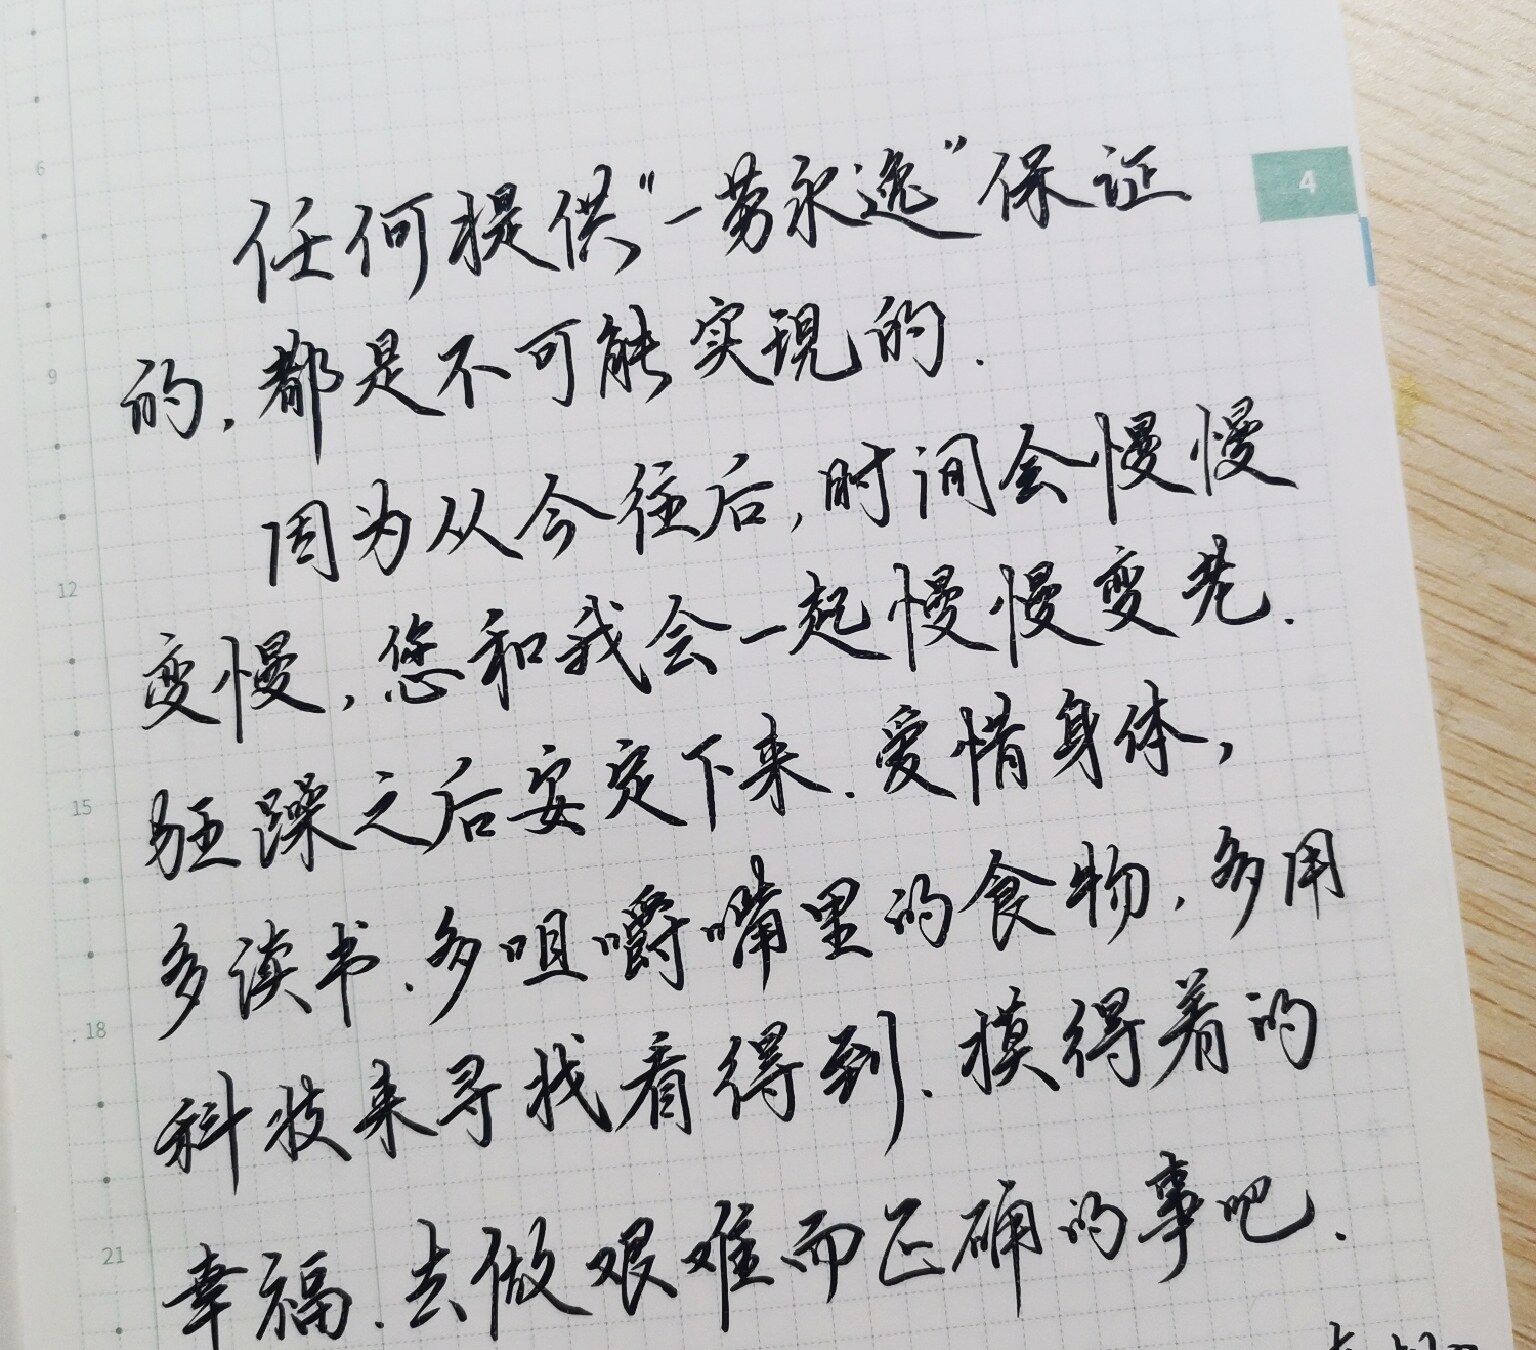 任何提供“一劳永逸”保证
的,都是不可能实现的.
因为从今往后,时间会慢慢
变慢,您和我会一起慢慢变老.
狂躁之后安定下来.爱惜身体,
多读书.多咀嚼嘴里的食物.多用
科技来寻找看得到.摸得着的
幸福.去做艰难而正确的事吧.
4
6
9
12
15
18
21